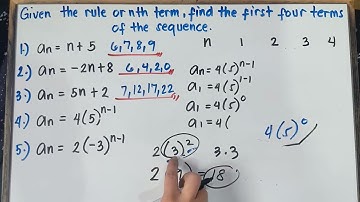 Given the rule or nth term, find the first four terms
of the sequence.
1.) an = n + 5 6, 7, 8, 9
2.) an = -2n + 8 6, 4, 2, 0
3.) an = 5n + 2 7, 12, 17, 22
4.) an = 4(5)^n-1
5.) an = 2(-3)^n-1
n 1 2 3 4
an = 4(5)^n-1
a1 = 4(5)^1-1
a1 = 4(5)^0
a1 = 4(
4(5)^0
2(3)^2 3.3
2 = 18